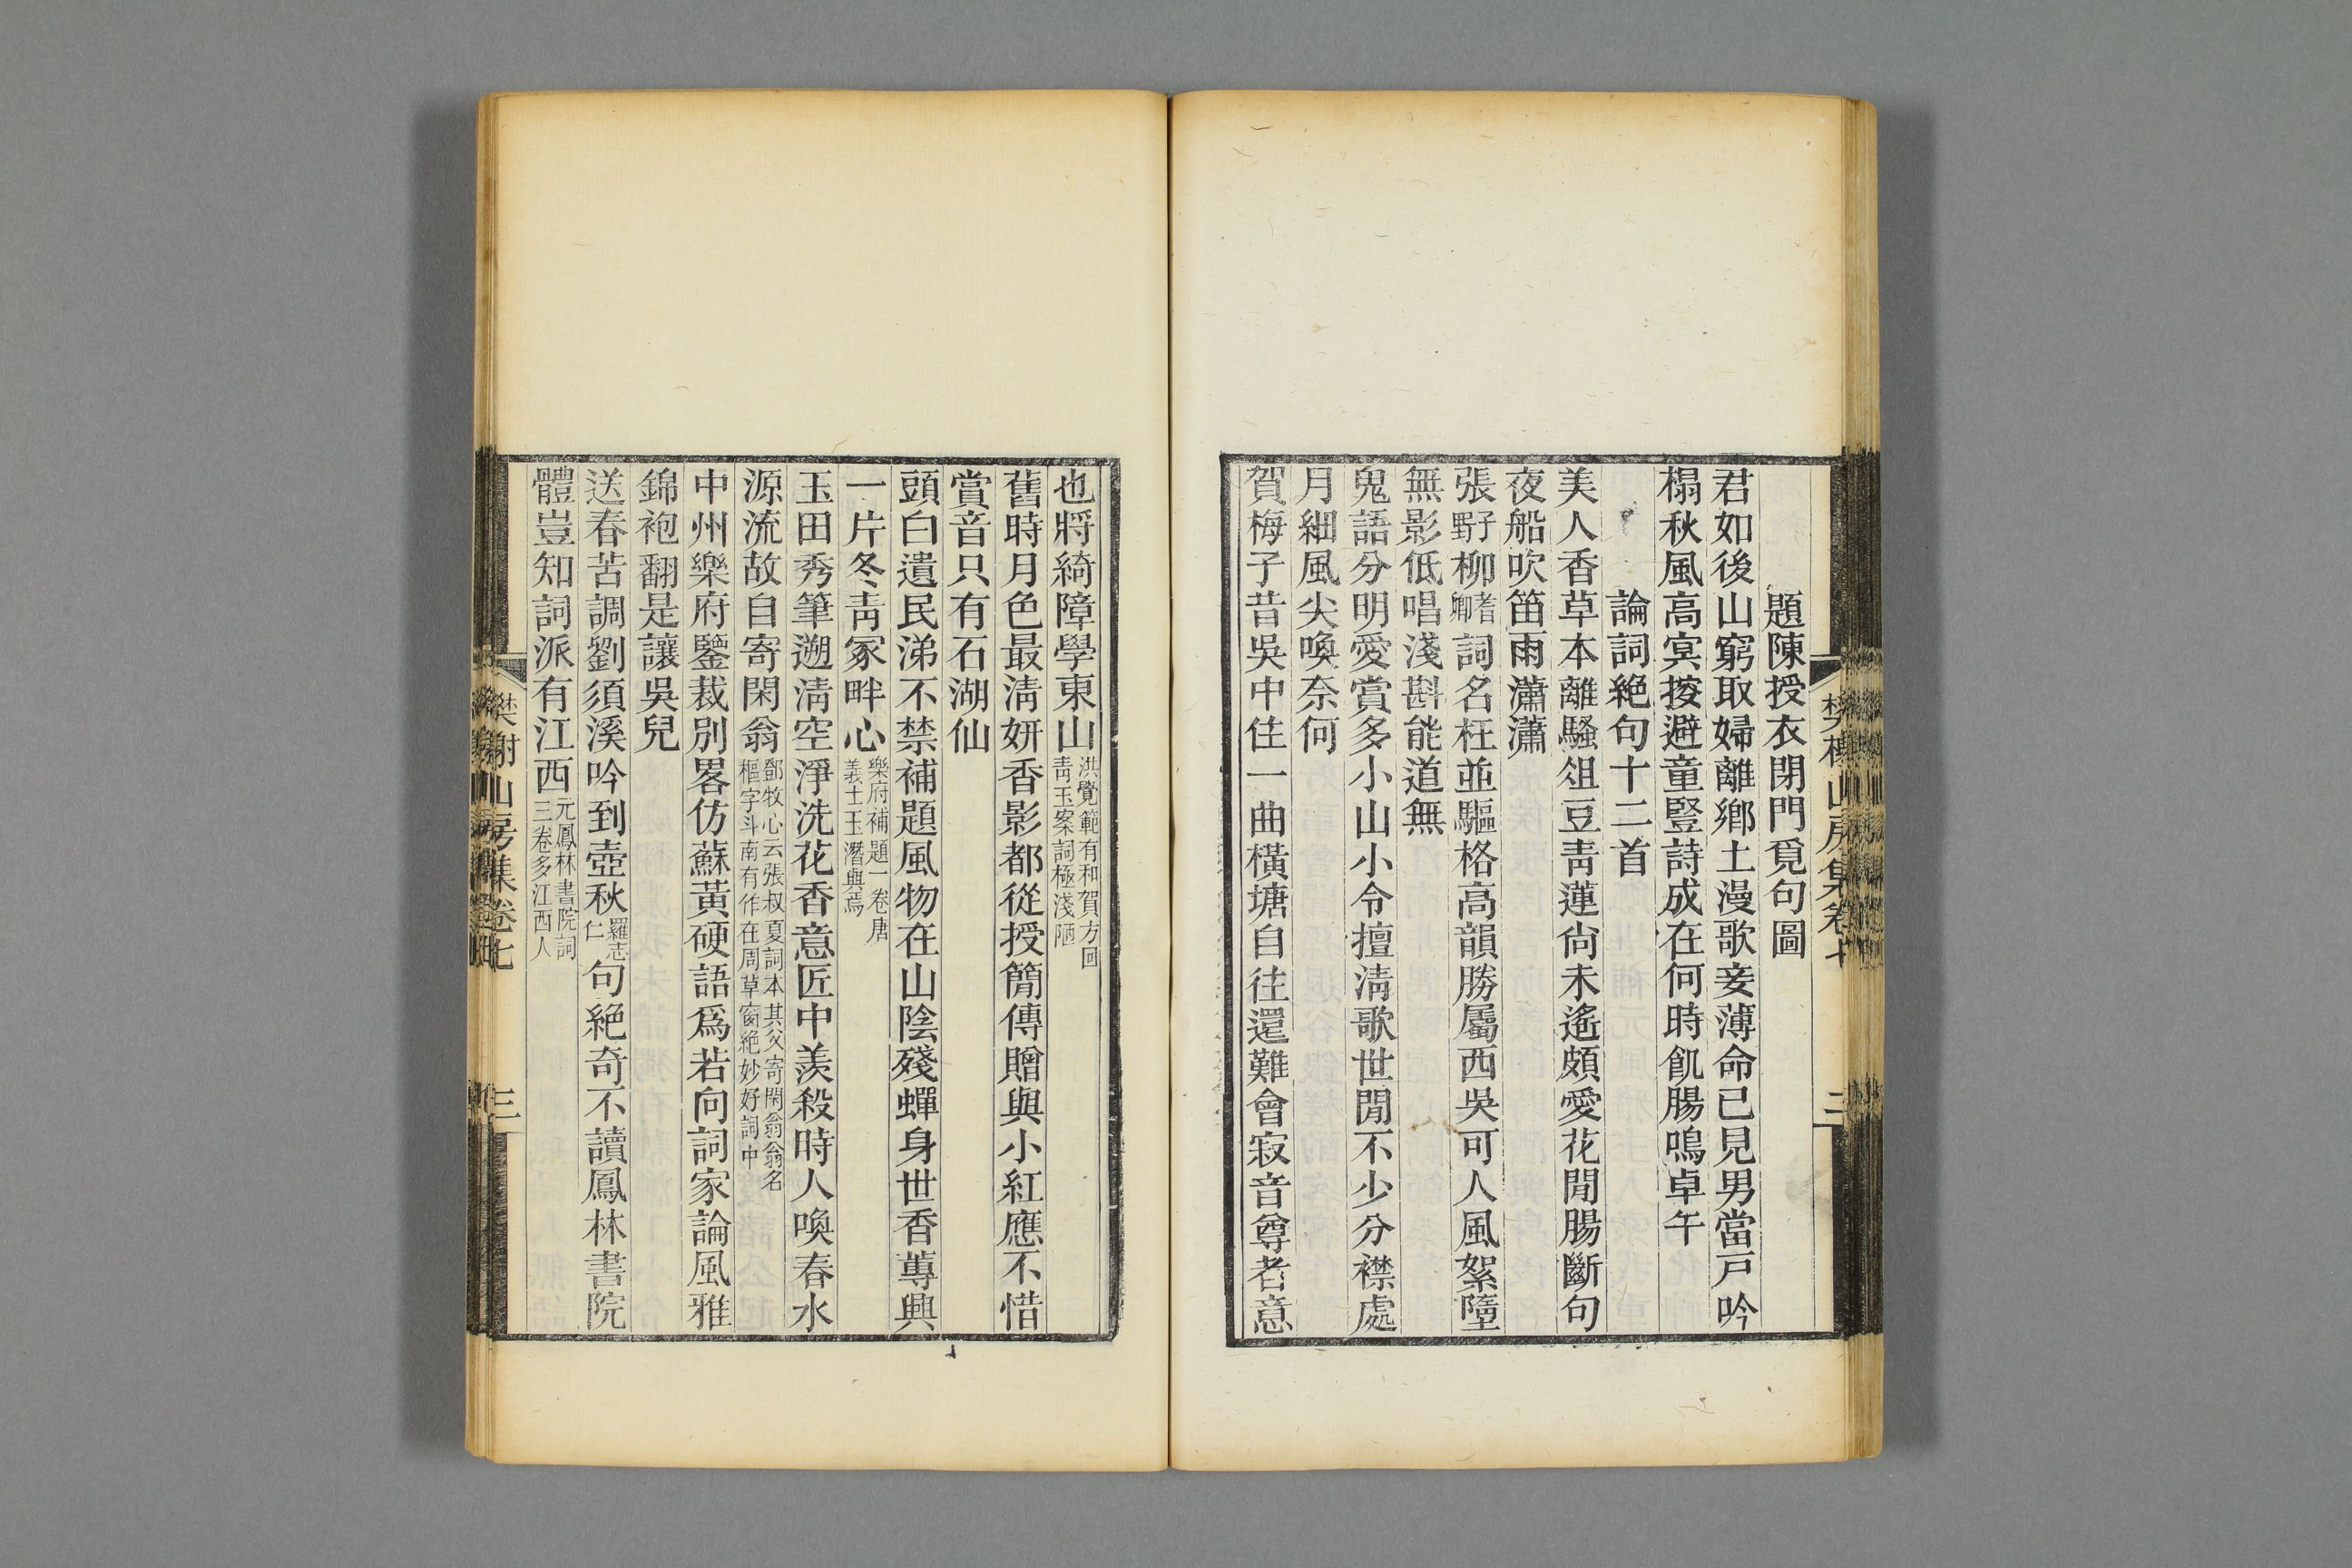 題陳授衣閉門覓句圖
君如後山窮取婦離鄉土漫歌妾薄命已見男當戸吟
榻秋風高寞挼避童豎詩成在何時飢腸鳴卓午
論詞絕句十二首
美人香草本離騷俎豆靑蓮尙未遙頗愛花閒腸斷句
夜船吹笛雨瀟瀟
張子野柳耆卿詞名枉並驅格高韻勝屬西吳可人風絮墮
無影低唱淺斟能道無
鬼語分明愛賞多小山小令擅淸歌世閒不少分襟處
月細風尖喚奈何
賀梅子昔吳中住一曲橫塘自往還難會寂音尊者意
樊榭山房集卷七 二
也將綺障學東山洪覺範有和賀方回靑玉案詞極淺陋
舊時月色最淸妍香影都從授簡傳贈與小紅應不惜
賞音只有石湖仙
頭白遺民涕不禁補題風物在山陰殘蟬身世香蓴興
一片冬靑冢畔心樂府補題一卷唐義士玉潛與焉
玉田秀筆遡淸空淨洗花香意匠中羨殺時人喚春水
源流故自寄閑翁鄧牧心云張叔夏詞本其父寄閑翁翁名樞字斗南有作在周草窗絕妙好詞中
中州樂府鑒裁別畧仿蘇黃硬語爲若向詞家論風雅
錦袍翻是讓吳兒
送春苦調劉須溪吟到壺秋羅志仁句絕奇不讀鳳林書院
體豈知詞派有江西元鳳林書院詞三卷多江西人
樊榭山房集卷七 三